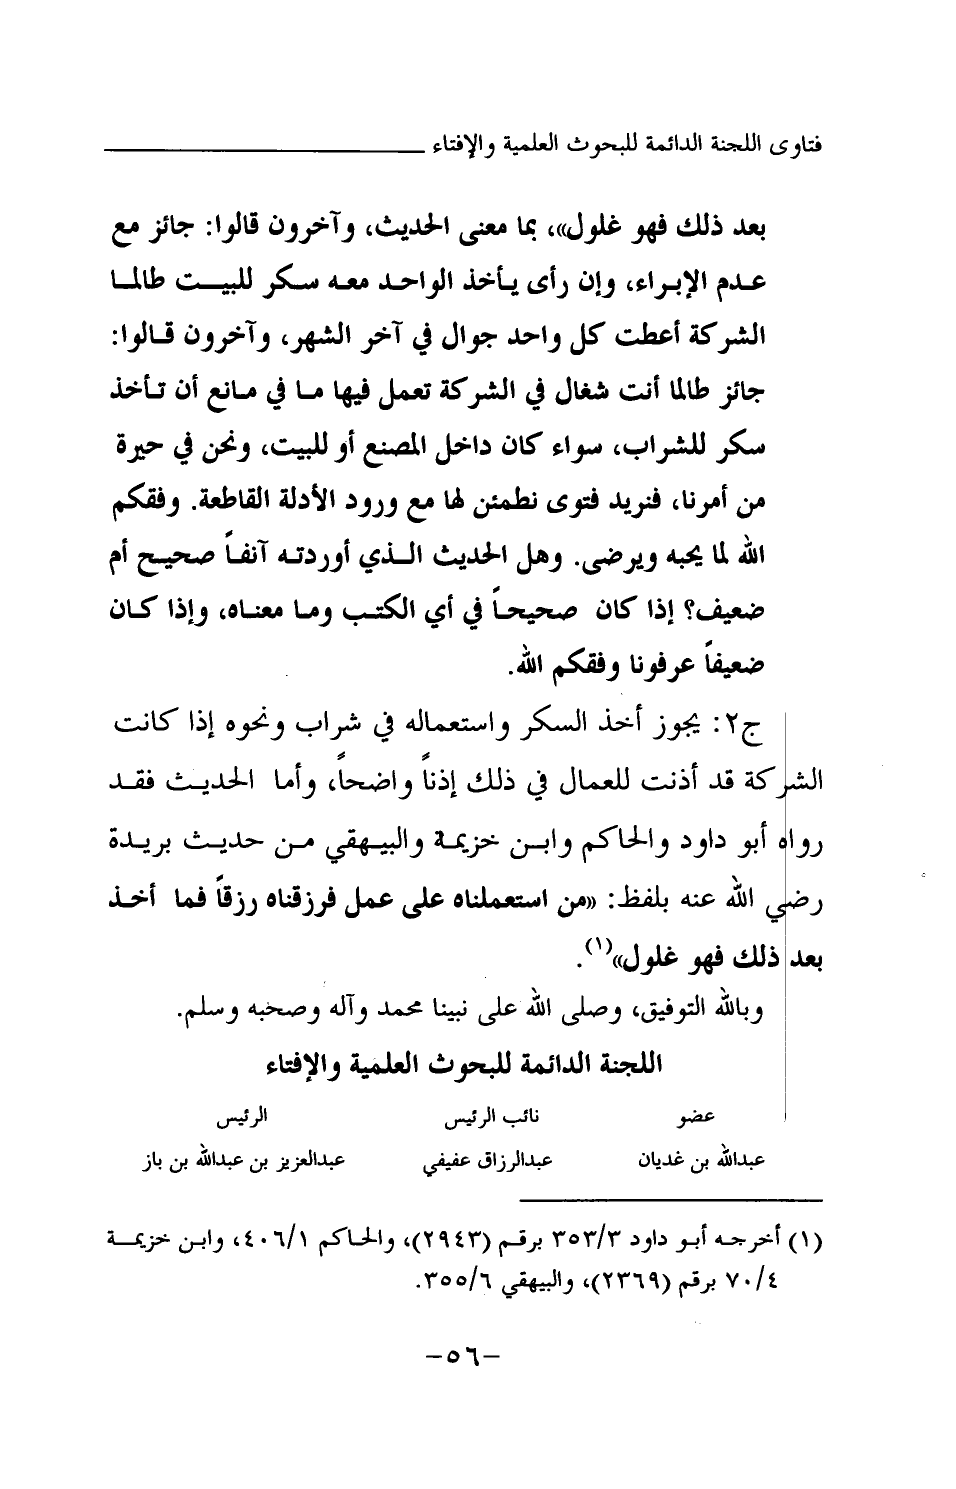 فتاوى اللجنة الدائمة للبحوث العلمية والإفتاء
بعد ذلك فهو غلول»، بما معنى الحديث، وآخرون قالوا: جائز مع
عدم الإبراء، وإن رأى يأخذ الواحد معه سكر للبيت طالما
الشركة أعطت كل واحد جوال في آخر الشهر، وآخرون قالوا:
جائز طالما أنت شغال في الشركة تعمل فيها ما في مانع أن تأخذ
سكر للشراب، سواء كان داخل المصنع أو للبيت، ونحن في حيرة
من أمرنا، فنريد فتوى نطمئن لها مع ورود الأدلة القاطعة. وفقكم
الله لما يحبه ويرضى. وهل الحديث الذي أوردته آنفاً صحيح أم
ضعيف؟ إذا كان صحيحاً في أي الكتب وما معناه، وإذا كان
ضعيفاً عرفونا وفقكم الله.
ج٢: يجوز أخذ السكر واستعماله في شراب ونحوه إذا كانت
الشركة قد أذنت للعمال في ذلك إذناً واضحاً، وأما الحديث فقد
رواه أبو داود والحاكم وابن خزيمة والبيهقي من حديث بريدة
رضي الله عنه بلفظ: «من استعملناه على عمل فرزقناه رزقاً فما أخذ
بعد ذلك فهو غلول»(١).
وبالله التوفيق، وصلى الله على نبينا محمد وآله وصحبه وسلم.
اللجنة الدائمة للبحوث العلمية والإفتاء
عضو نائب الرئيس الرئيس
عبدالله بن غديان عبدالرزاق عفيفي عبدالعزيز بن عبدالله بن باز
(١) أخرجه أبو داود ٣٥٣/٣ برقم (٢٩٤٣)، والحاكم ٤٠٦/١، وابن خزيمة
٧٠/٤ برقم (٢٣٦٩)، والبيهقي ٣٥٥/٦.
-٥٦-